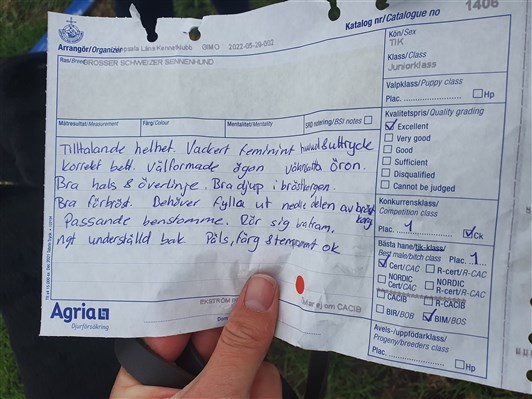 Katalog nr/Catalogue no
1406
Arrangör/Organizer
Uppsala Läns Kennelklubb GIMO 2022-05-29-002
Ras/Breed
GROSSER SCHWEIZER SENNENHUND
Kön/Sex
TIK
Klass/Class
Juniorklass
Valpklass/Puppy class
Plac. Hp
Mätresultat/Measurement Färg/Colour Mentalitet/Mentality SRD notering/BSI notes
Tilltalande helhet. Vackert feminint huvud & uttryck
korrekt bett. Välformade ögon välansatta öron.
Bra hals & överlinje. Bra djup i bröstkorgen.
Bra förbröst. Behöver fylla ut nedre delen av bröst
korg
Passande benstomme. Rör sig bra fram,
ngt underställd bak. Päls, färg & temperament ok
Kvalitetspris/Quality grading
Excellent
Very good
Good
Sufficient
Disqualified
Cannot be judged
Konkurrensklass/
Competition class
Plac. 1 Ck
Bästa hane/tik-klass/
Best male/bitch class
Plac. 1
Cert/CAC R-cert/R-CAC
NORDIC Cert/CAC
NORDIC R-cert/R-CAC
CACIB R-CACIB
BIR/BOB BIM/BOS
Avels-/uppfödarklass/
Progeny/breeders class
Plac. Hp
Agria
Djurförsäkring
ej om CACIB